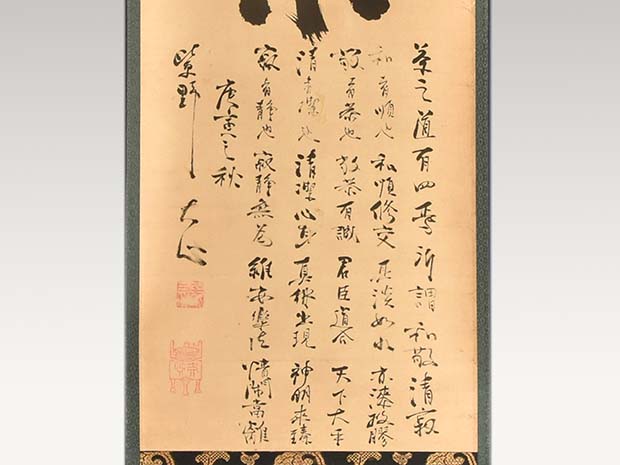 茶之道有四焉所謂和敬清寂
和者順也和順修交淡如水亦漆投膠
敬者恭也敬恭有誠君臣道合天下太平
清者潔也清潔心身真機出現神明来臻
寂者静也寂静無雖安樂法憒鬧當離
庚寅之秋
紫野大心